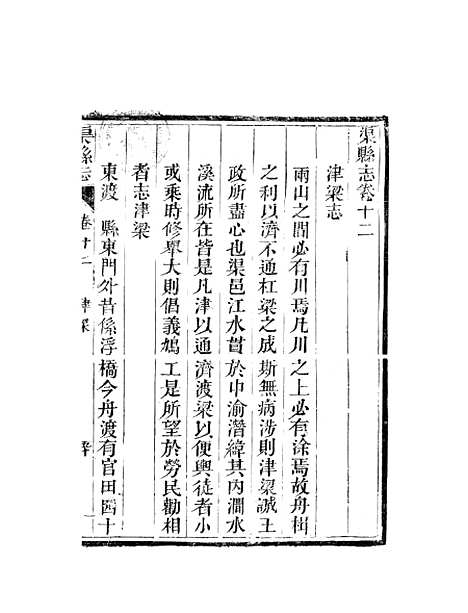 渠縣志卷十二
津梁志
兩山之間必有川焉凡川之上必有涂焉故舟楫
之利以濟不通杠梁之成斯無病涉則津梁誠王
政所盡心也渠邑江水貫於中渝潛緯其內澗水
溪流所在皆是凡津以通濟渡梁以便輿徒者小
或乘時修舉大則倡義鳩工是所望於勞民勸相
者志津梁
東渡　縣東門外昔係浮橋今舟渡有官田四十
渠縣志　卷十二　津梁